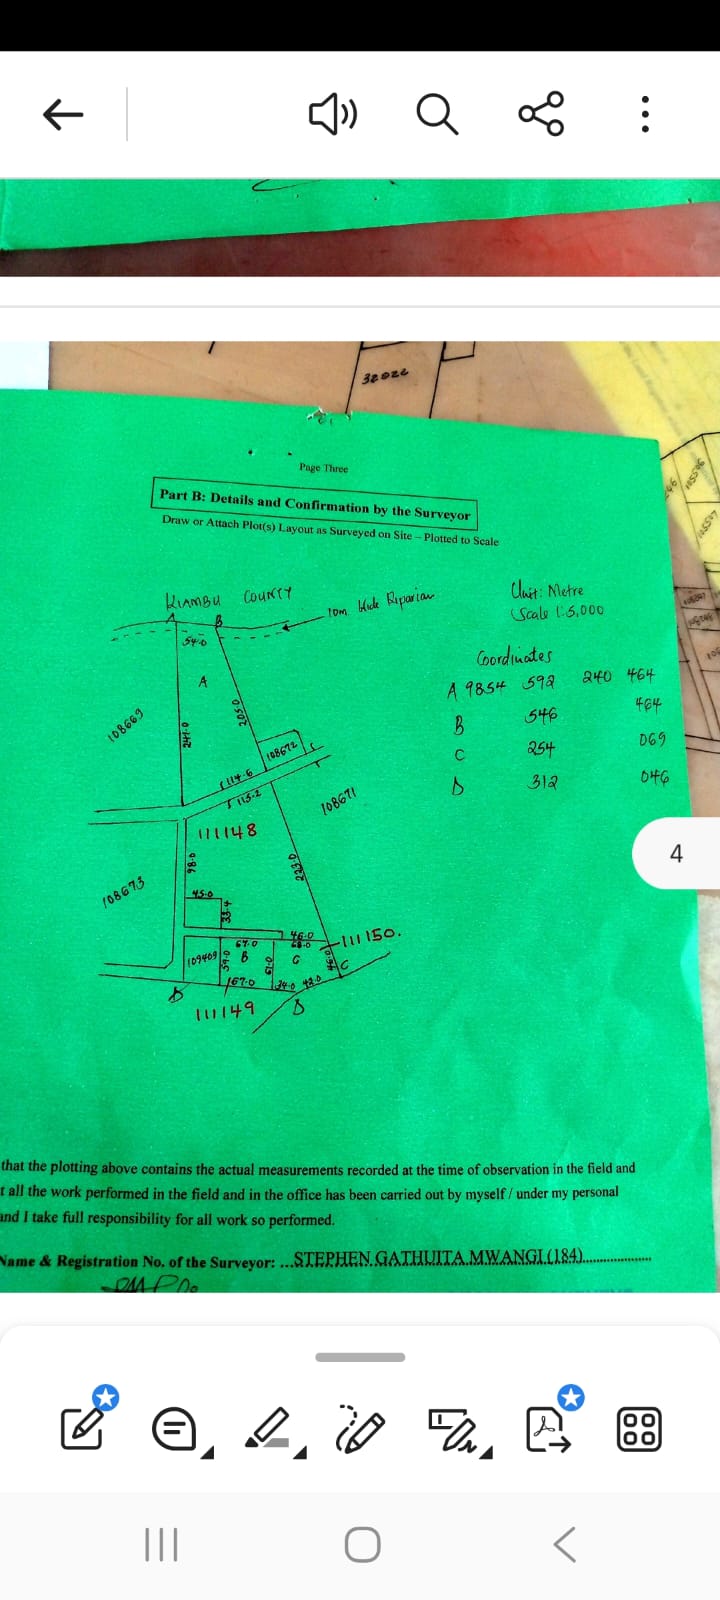 32022
Page Three
Part B: Details and Confirmation by the Surveyor
Draw or Attach Plot(s) Layout as Surveyed on Site – Plotted to Scale
KIAMBU COUNTY
10m Wide Riparian
Unit: Metre
Scale 1:5,000
A
B
54.0
A
108669
241.0
205.0
108672
114.6
115.2
108671
Coordinates
A 9854 592 240 464
B 546 464
C 254 069
D 312 046
111148
98.0
223.0
108673
45.0
33.4
46.0
68.0
111150.
67.0
109409
59.0
B
61.0
C
46.0
C
67.0
34.0
42.0
D
111149
D
105506
105507
that the plotting above contains the actual measurements recorded at the time of observation in the field and
t all the work performed in the field and in the office has been carried out by myself / under my personal
and I take full responsibility for all work so performed.
Name & Registration No. of the Surveyor: ...STEPHEN.GATHUITA.MWANGI.(184)..................
4